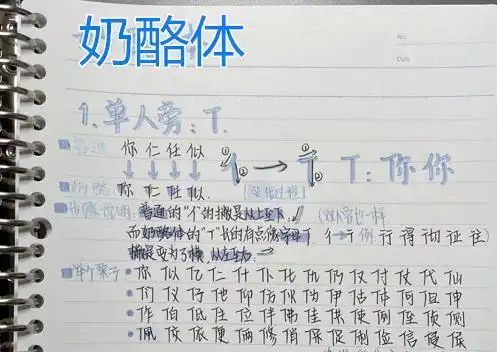 奶酪体
No.
Date
1.单人旁:T.
普通 你 仁 任 似
① ② 亻→T ① ② T:你 你
奶酪 你 仁 任 似. (变化过程)
步骤说明:普通的"亻"的撇是从上至下.↙ (双人旁也一样
而奶酪体的"亻"书的有点像字母T 彳→ 例 行 得 彻 征 往)
撇是变为了横,从左至右.→
单个栗子:•你 似 亿 仁 什 仆 化 仇 仍 仅 付 仗 代 仙
•们 仪 仔 他 仰 仿 伙 伪 伊 估 体 何 但 伸
•作 伯 低 住 位 伴 佛 佳 供 使 例 侄 侦 侧
•佩 侯 依 便 俩 修 俏 保 促 俐 俭 信 侵 侯